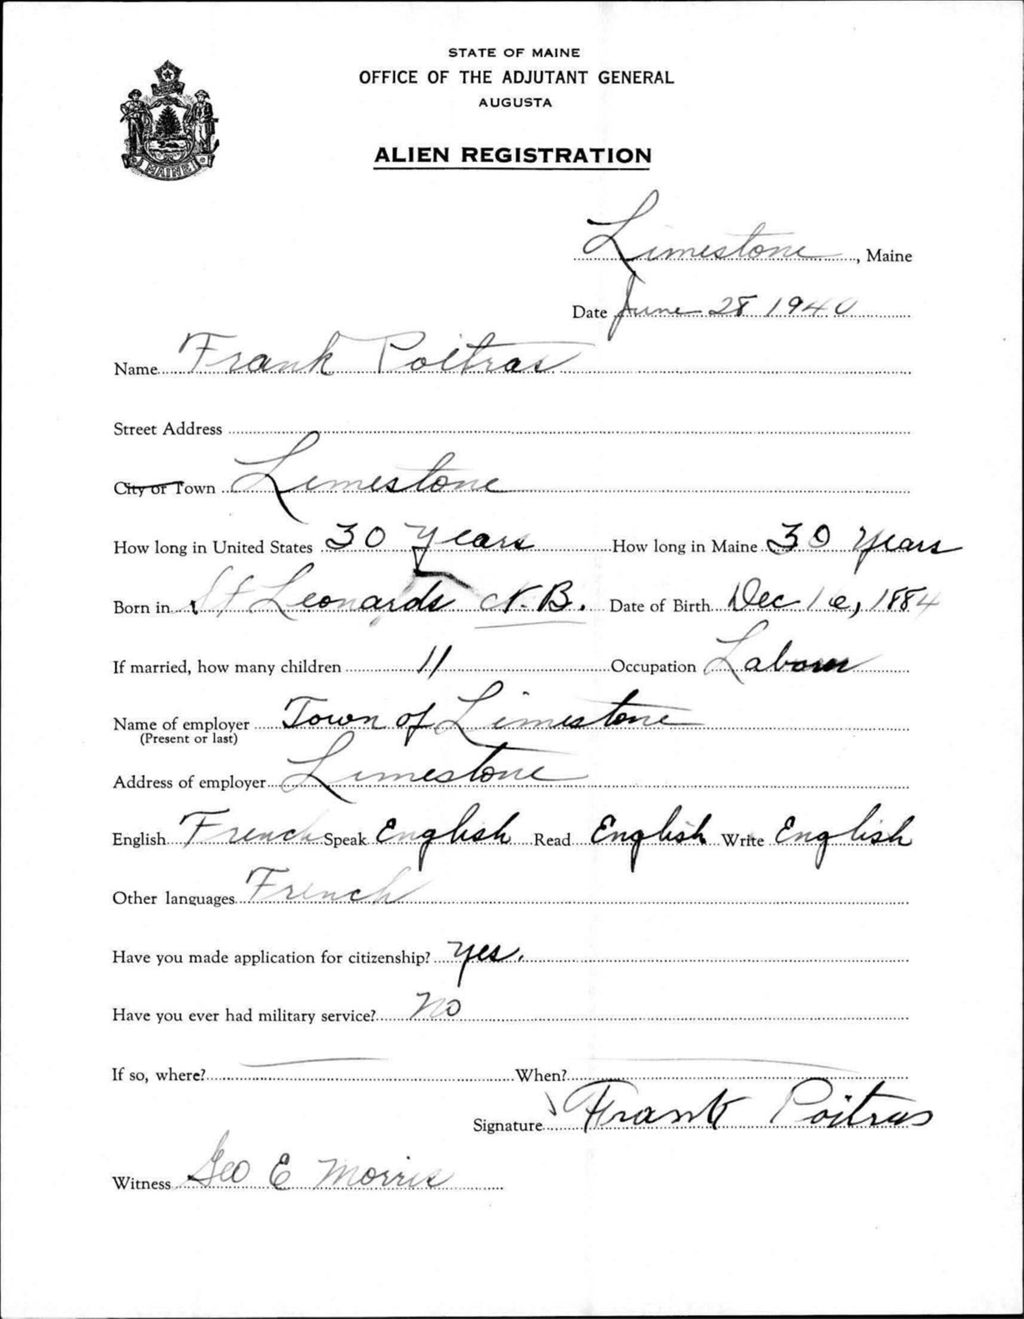 STATE OF MAINE
OFFICE OF THE ADJUTANT GENERAL
AUGUSTA
MAINE
ALIEN REGISTRATION
Limestone, Maine
Date June 28 1940
Name Frank Poitras
Street Address
City or Town Limestone
How long in United States 30 Years How long in Maine 30 Years
Born in St Leonards N.B. Date of Birth Dec 16, 1884
If married, how many children 11 Occupation Laborer
Name of employer Town of Limestone
(Present or last)
Address of employer Limestone
English French Speak English Read English Write English
Other languages French
Have you made application for citizenship? Yes.
Have you ever had military service? No
If so, where? When?
Signature Frank Poitras
Witness Geo E Morris